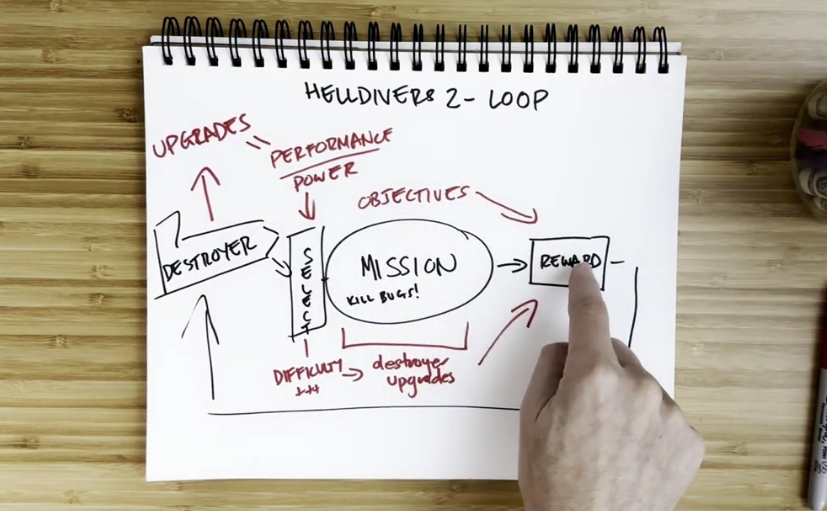 HELLDIVERS 2 - LOOP
UPGRADES
PERFORMANCE
POWER
OBJECTIVES
DESTROYER
SELECT
MISSION
KILL BUGS!
REWARD
DIFFICULTY
destroyer
upgrades